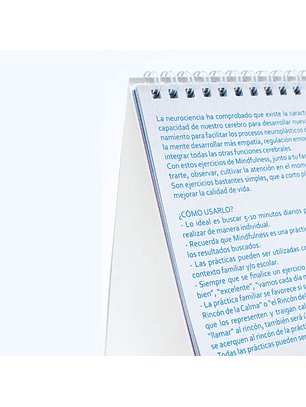 La neurociencia ha comprobado que existe la caract
capacidad de nuestro cerebro para desarrollar nuev
namiento para facilitar los procesos neuroplásticos d
la mente desarrollar más empatía, regulación emo
integrar todas las otras funciones cerebrales.
Con estos ejercicios de Mindfulness, junto a tu fa
trarte, observar, cultivar la atención en el mome
Son ejercicios bastantes simples, que a corto pl
mejorar la calidad de vida.
¿CÓMO USARLO?
- Lo ideal es buscar 5-10 minutos diarios p
realizar de manera individual.
- Recuerda que Mindfulness es una práctic
los resultados buscados.
- Las prácticas pueden ser utilizadas c
contexto familiar y/o escolar.
- Siempre que se finalice un ejercicio
bien", "excelente", "vamos cada día m
- La práctica familiar se favorece si s
Rincón de la Calma" o "el Rincón del
que los representen y traigan cal
"llamar" al rincón, también será ú
se acerquen al rincón de la práct
Todas las prácticas pueden ser